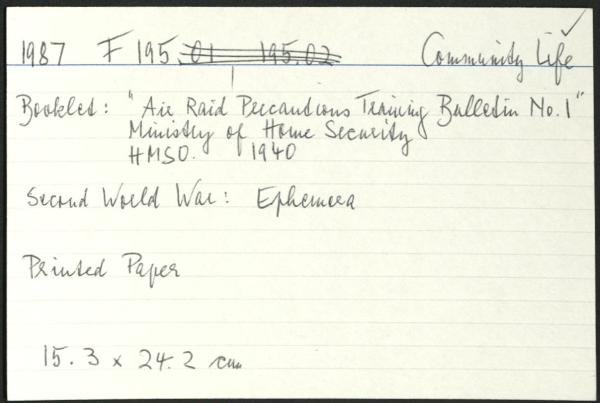 1987 F 195 .01 195.02 Community Life
Booklet: "Air Raid Precautions Training Bulletin No. 1"
Ministry of Home Security
HMSO. 1940
Second World War: Ephemera
Printed Paper
15.3 x 24.2 cm